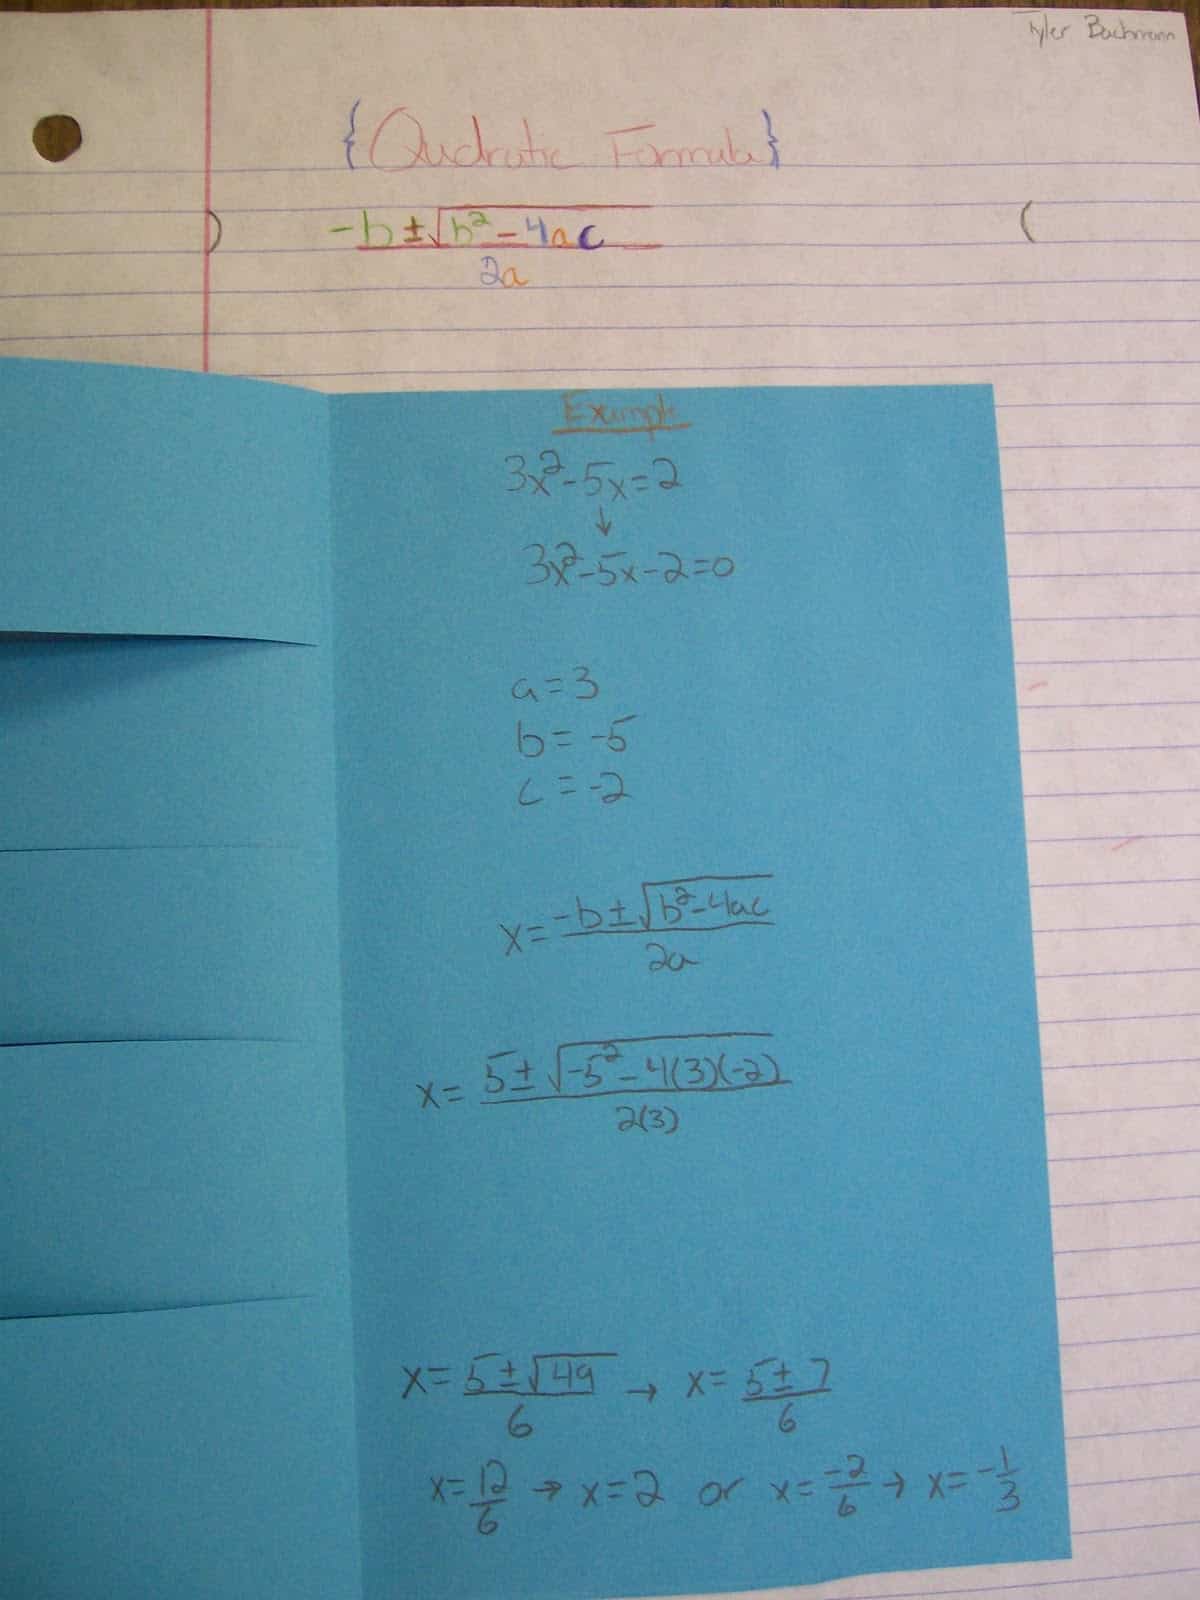 Tyler Bachmann
{Qudratic Formula}
) -b±√b²-4ac (
2a
Example
3x²-5x=2
↓
3x²-5x-2=0
a=3
b=-5
c=-2
x=-b±√b²-4ac
2a
x=5±√-5²-4(3)(-2)
2(3)
x=5±√49/6 → x=5±7/6
x=12/6 → x=2 or x=-2/6 → x=-1/3